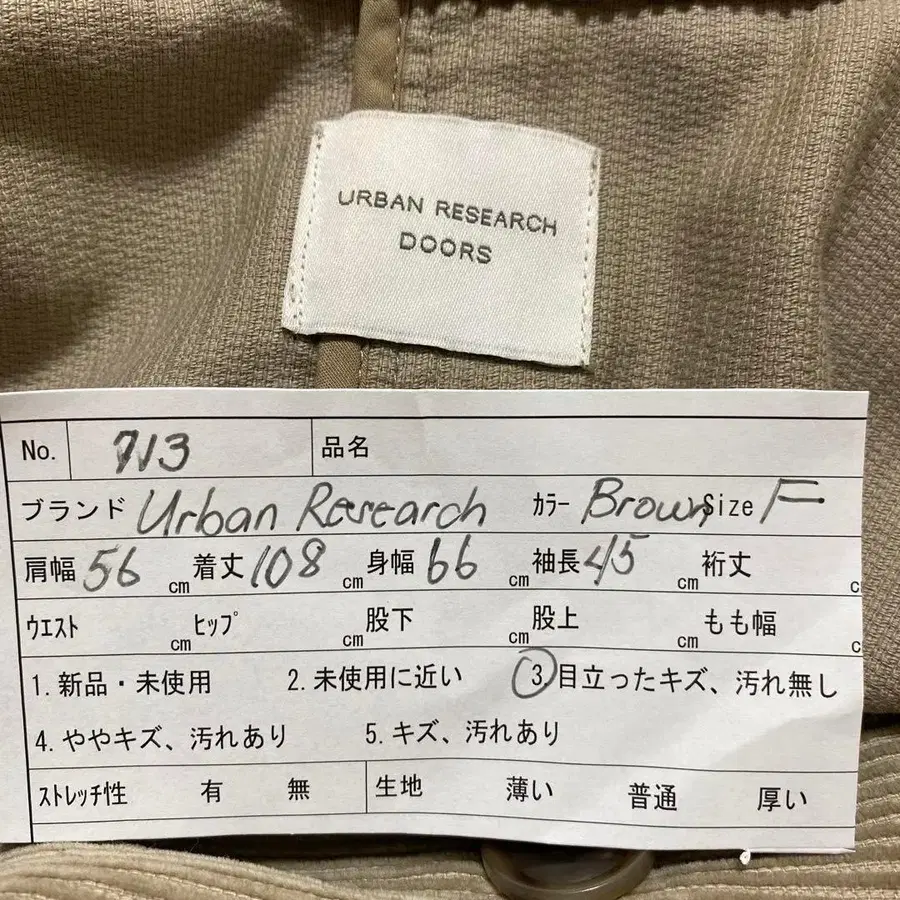 URBAN RESEARCH
DOORS
No. 713 品名
ブランド Urban Research カラー Brown Size F
肩幅 56 cm 着丈 108 cm 身幅 66 cm 袖長 45 cm 裄丈 c
ウエスト cm ヒップ cm 股下 cm 股上 cm もも幅 c
1. 新品・未使用 2. 未使用に近い 3. 目立ったキズ、汚れ無し
4. ややキズ、汚れあり 5. キズ、汚れあり
ストレッチ性 有 無 生地 薄い 普通 厚い